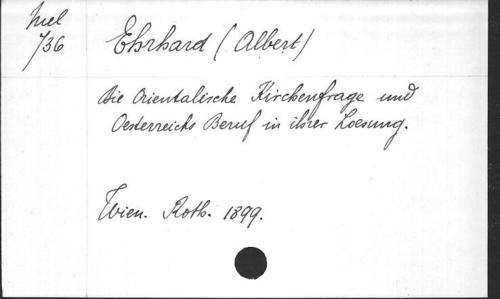 Mel
736
Ehrhard (Albert)
Die Orientalische Kirchenfrage und
Oesterreichs Beruf in ihrer Loesung.
Wien. Roth. 1899.